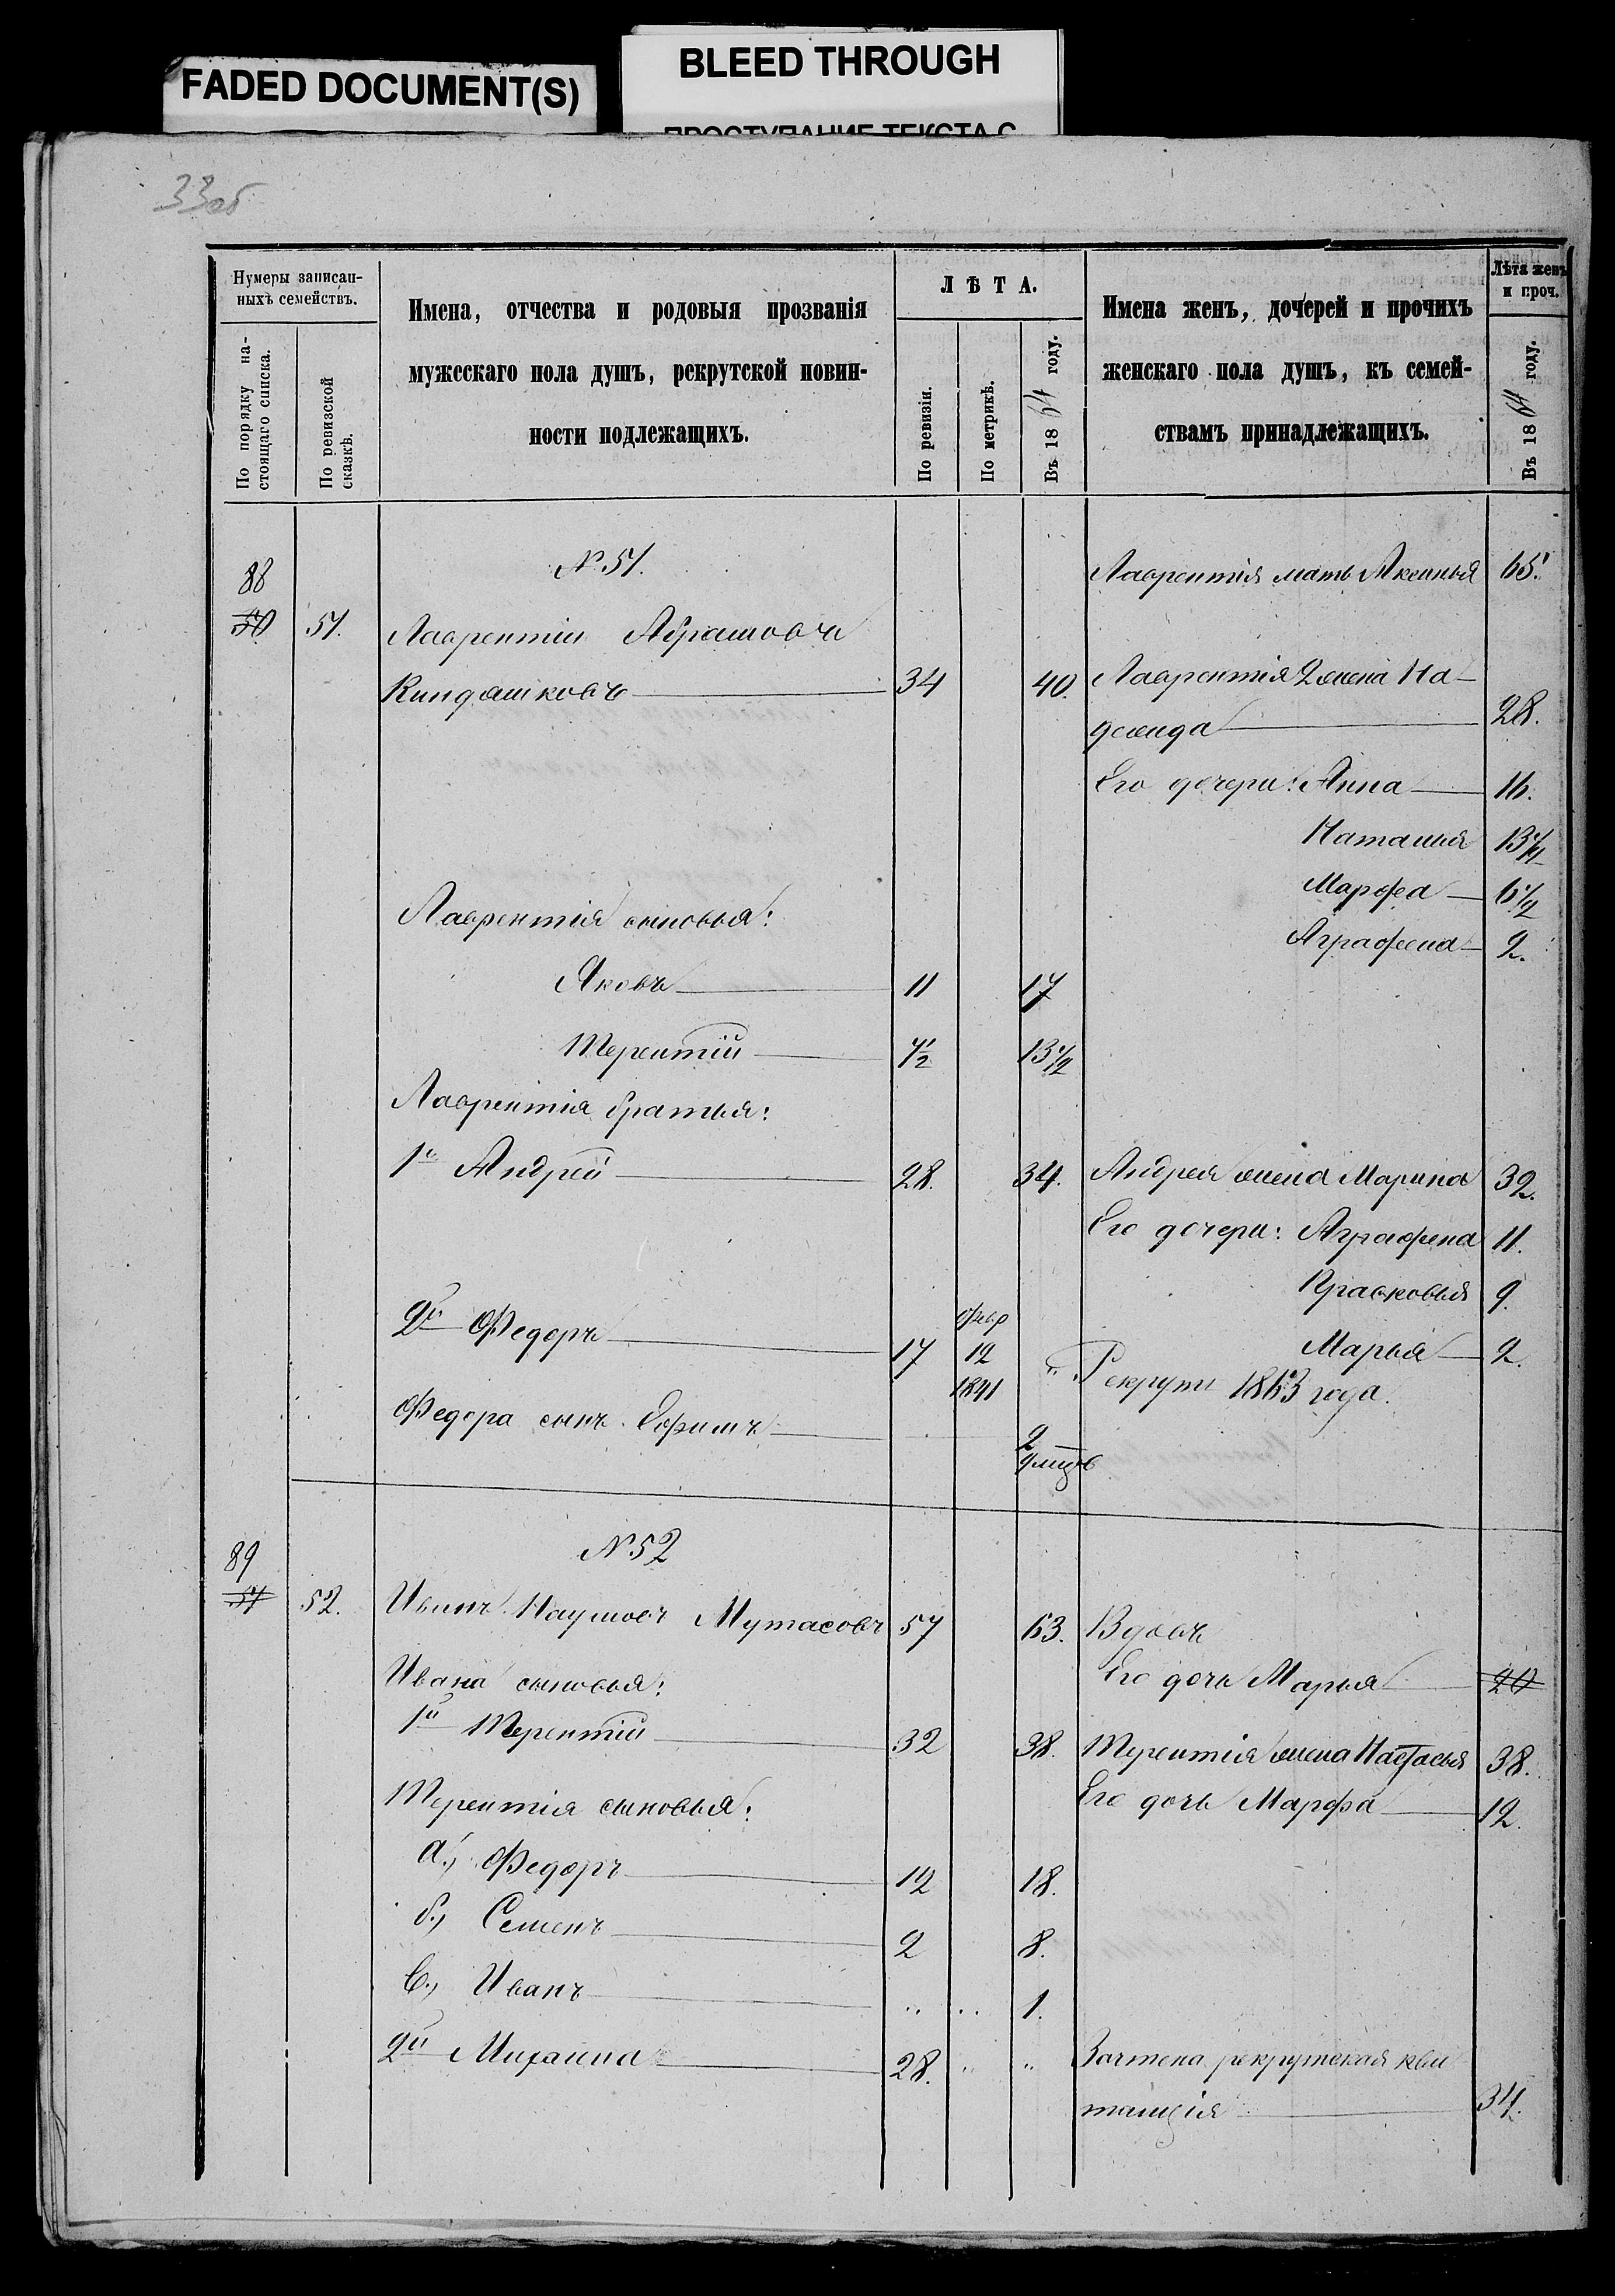 FADED DOCUMENT(S)
BLEED THROUGH
ПРОСТУПАНИЕ ТЕКСТА С
33об
Нумеры записан-
ныхъ семействъ.
По порядку на-
стоящаго списка.
По ревизской
сказкѣ.
Имена, отчества и родовыя прозванія
мужескаго пола душъ, рекрутской повин-
ности подлежащихъ.
ЛѢТА.
По ревизіи.
По метрикѣ.
Въ 1864 году.
Имена женъ, дочерей и прочихъ
женскаго пола душъ, къ семей-
ствамъ принадлежащихъ.
Лѣта женъ
и проч.
Въ 1864 году.
88 № 51. Лаврентія мать Аксинья 65.
50 51. Лаврентій Абрамовъ
Киндяшковъ 34 40. Лаврентія 2 жена На-
дежда 28.
Его дочери: Анна 16.
Наталья 13 1/2
Марфа 6 1/2
Лаврентія сыновья:
Аграфена 2.
Яковъ 11 17
Терентій 7 1/2 13 1/2
Лаврентія братья:
1й Андрей 28. 34. Андрея жена Марина 32.
Его дочери: Аграфена 11.
Прасковья 9.
2й Федоръ 17 февр 12 1841 Марья 2.
" Рекрутъ 1863 года.
Федора сынъ Ефимъ 2
89 № 52
51 52. Иванъ Наумовъ Мутасовъ 57 63. Вдовъ
Ивана сыновья: Его дочь Марья 20
1й Терентій 32 38. Терентія жена Настасья 38.
Терентія сыновья: Его дочь Марфа 12.
а., Федоръ 12 18.
б., Семенъ 2 8.
в., Иванъ " " 1.
2й Михаила 28. " " Зачтена рекрутская кви
танція 34.